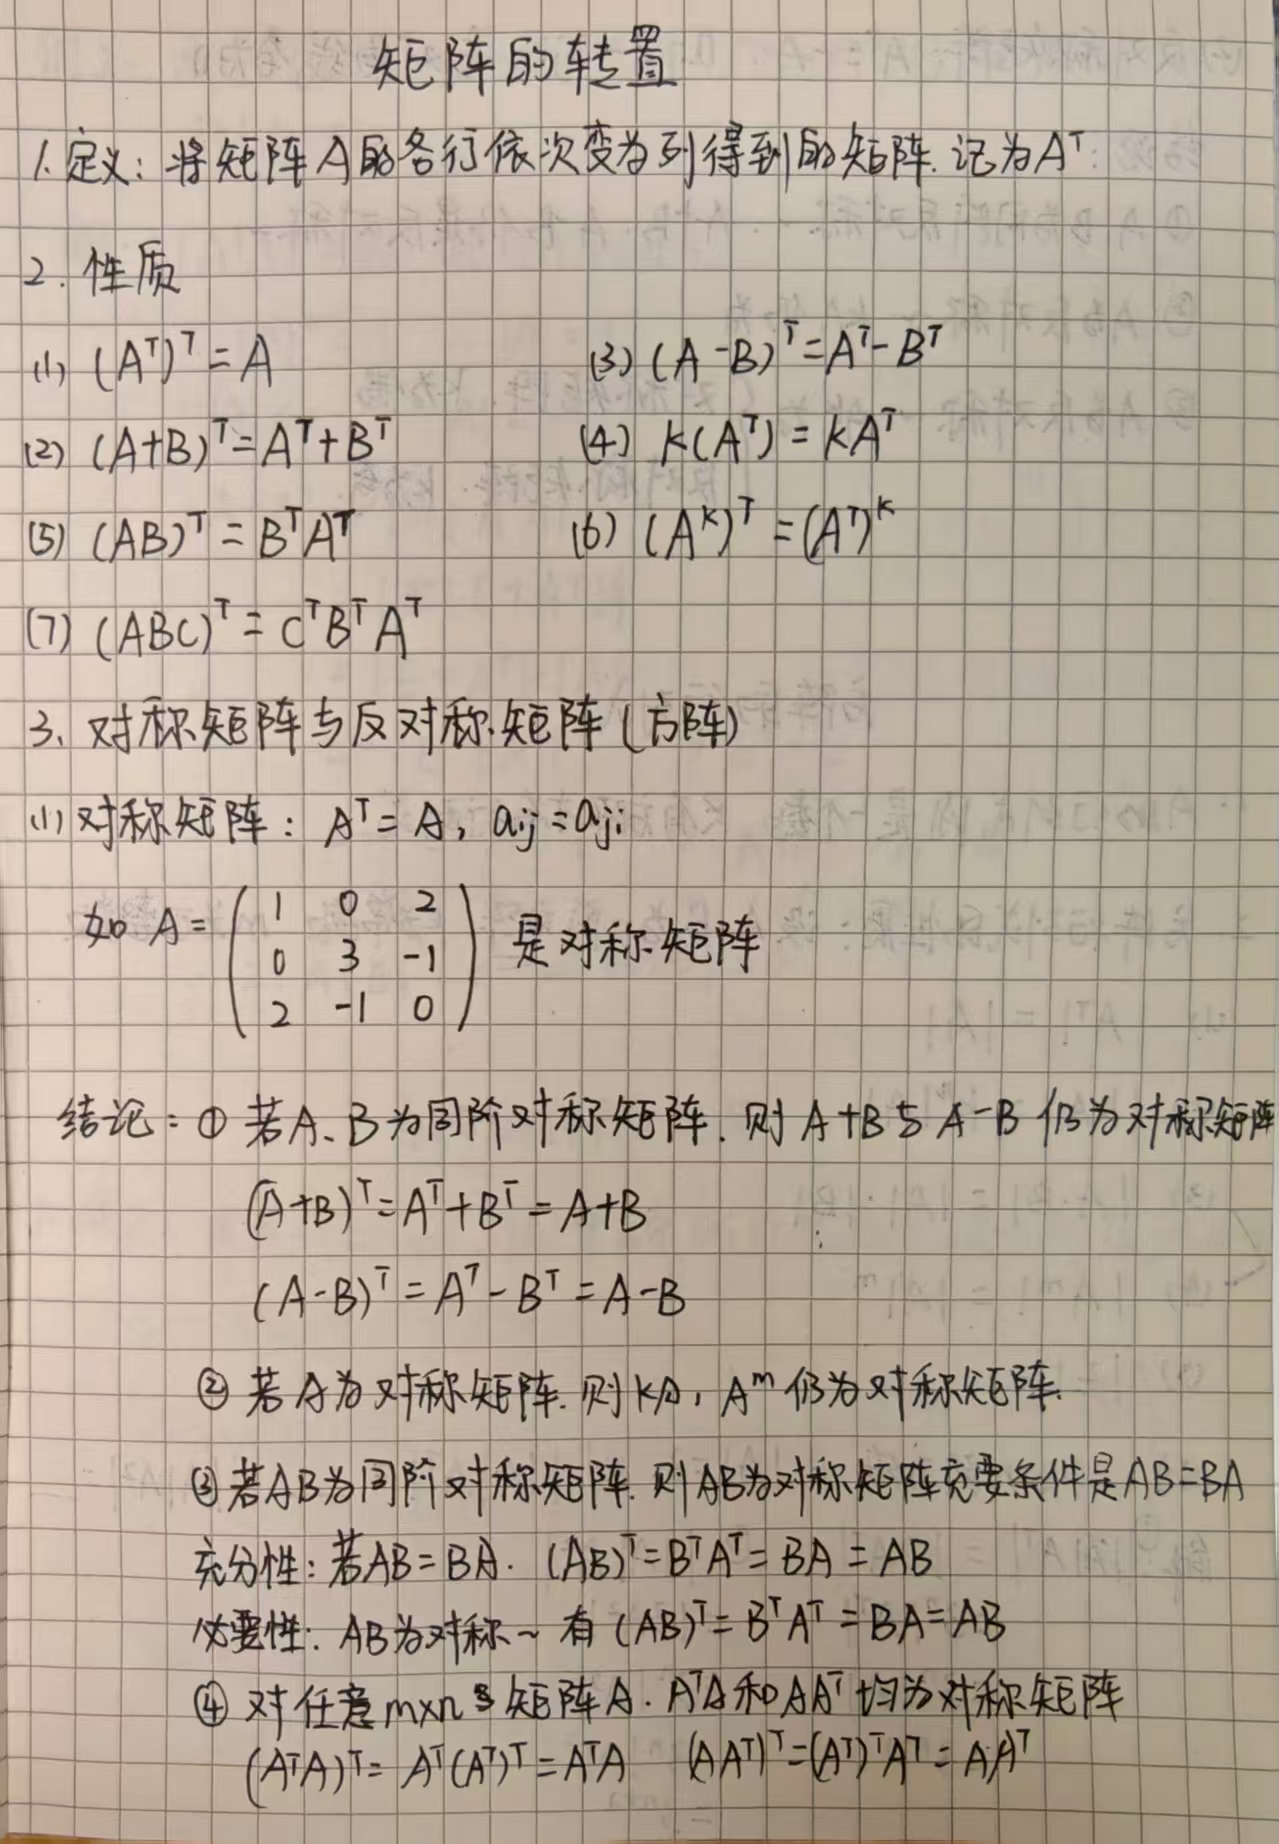 矩阵的转置
1. 定义：将矩阵A的各行依次变为列得到的矩阵. 记为Aᵀ
2. 性质
(1) (Aᵀ)ᵀ = A
(3) (A-B)ᵀ = Aᵀ - Bᵀ
(2) (A+B)ᵀ = Aᵀ + Bᵀ
(4) k(Aᵀ) = kAᵀ
(5) (AB)ᵀ = BᵀAᵀ
(6) (Aᵏ)ᵀ = (Aᵀ)ᵏ
(7) (ABC)ᵀ = CᵀBᵀAᵀ
3. 对称矩阵与反对称矩阵 (方阵)
(1) 对称矩阵： Aᵀ = A, aij = aji
如 A = 是对称矩阵
1 0 2
0 3 -1
2 -1 0
结论：① 若A、B为同阶对称矩阵. 则 A+B与A-B 仍为对称矩阵
(A+B)ᵀ = Aᵀ + Bᵀ = A+B
(A-B)ᵀ = Aᵀ - Bᵀ = A-B
② 若A为对称矩阵. 则kA, Aᵐ 仍为对称矩阵.
③ 若AB为同阶对称矩阵. 则AB为对称矩阵充要条件是AB=BA
充分性：若AB=BA. (AB)ᵀ = BᵀAᵀ = BA = AB
必要性：AB为对称~ 有 (AB)ᵀ = BᵀAᵀ = BA = AB
④ 对任意m×n 矩阵A. AᵀA和AAᵀ 均为对称矩阵
(AᵀA)ᵀ = Aᵀ(Aᵀ)ᵀ = AᵀA (AAᵀ)ᵀ = (Aᵀ)ᵀAᵀ = AAᵀ